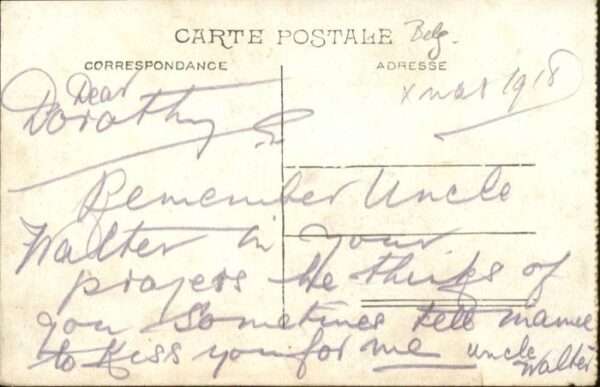 CARTE POSTALE Belg.
CORRESPONDANCE
ADRESSE
xmas 1918
Dear
Dorothy
Remember Uncle
Walter in your
prayers He thinks of
you Sometimes tell mamie
to Kiss you for me uncle
Walter